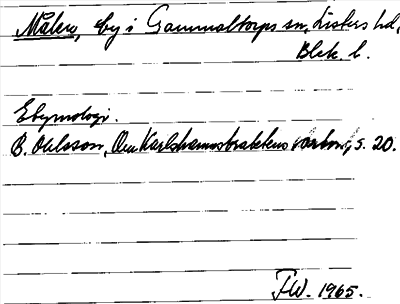 Målen, by i Gammaltorps sn, Listers hd,
Blek. l.
Etymologi.
B. Ohlsson, Om Karlshamnstraktens s. 20.
F.W. 1965.